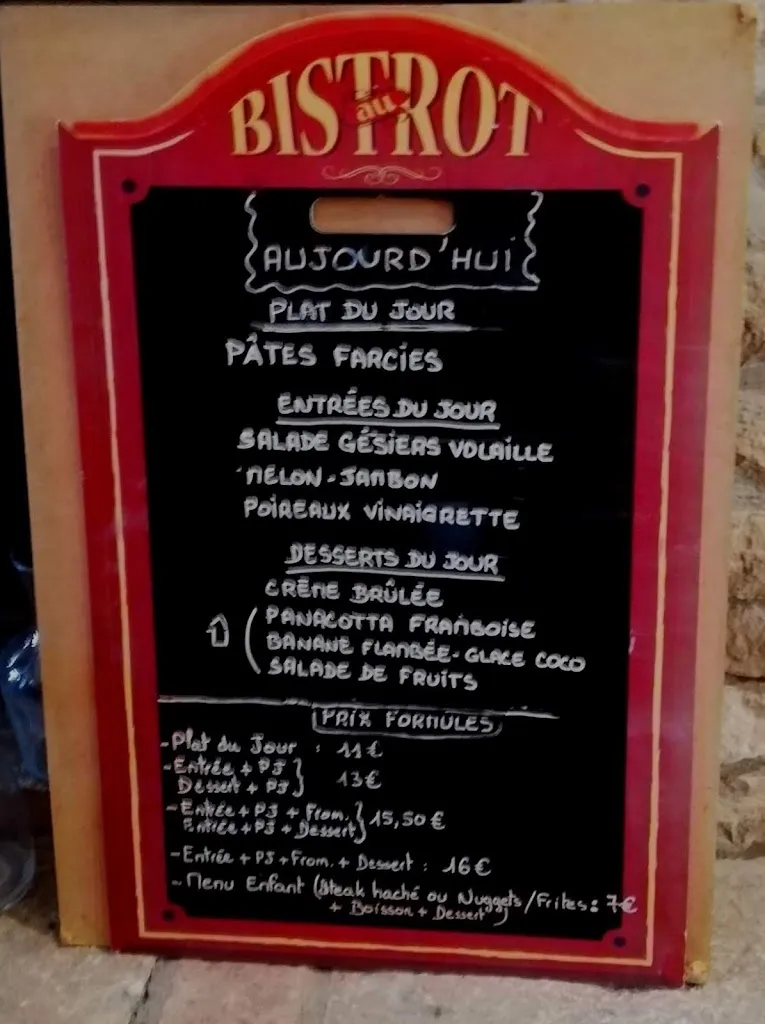 BISTROT
au
AUJOURD'HUI
PLAT DU JOUR
PÂTES FARCIES
ENTRÉES DU JOUR
SALADE GÉSIERS VOLAILLE
MELON-JAMBON
POIREAUX VINAIGRETTE
DESSERTS DU JOUR
CRÊME BRÛLÉE
PANACOTTA FRAMBOISE
BANANE FLAMBÉE-GLACE COCO
SALADE DE FRUITS
PRIX FORMULES
-Plat du Jour : 11€
-Entrée + PJ
Dessert + PJ } 13€
-Entrée + PJ + From.
Entrée + PJ + Dessert } 15,50€
-Entrée + PJ + From. + Dessert : 16€
-Menu Enfant (Steak haché ou Nuggets/Frites: 7€
+ Boisson + Dessert)